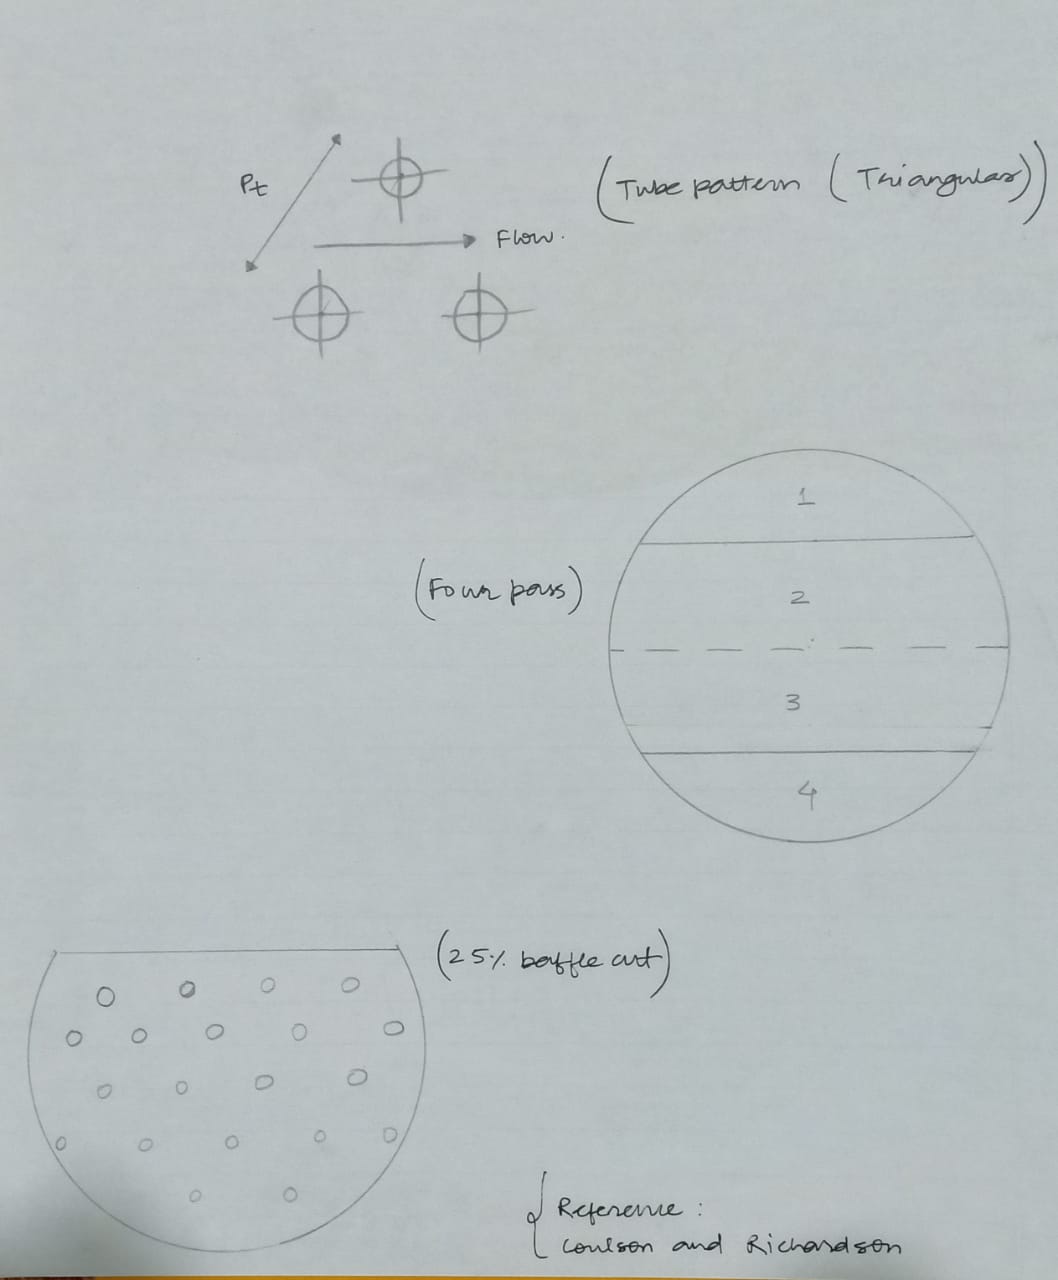 Pt
(Tube pattern (Triangular))
Flow.
1
(Four pass)
2
3
4
(25% baffle cut)
Reference :
Coulson and Richardson